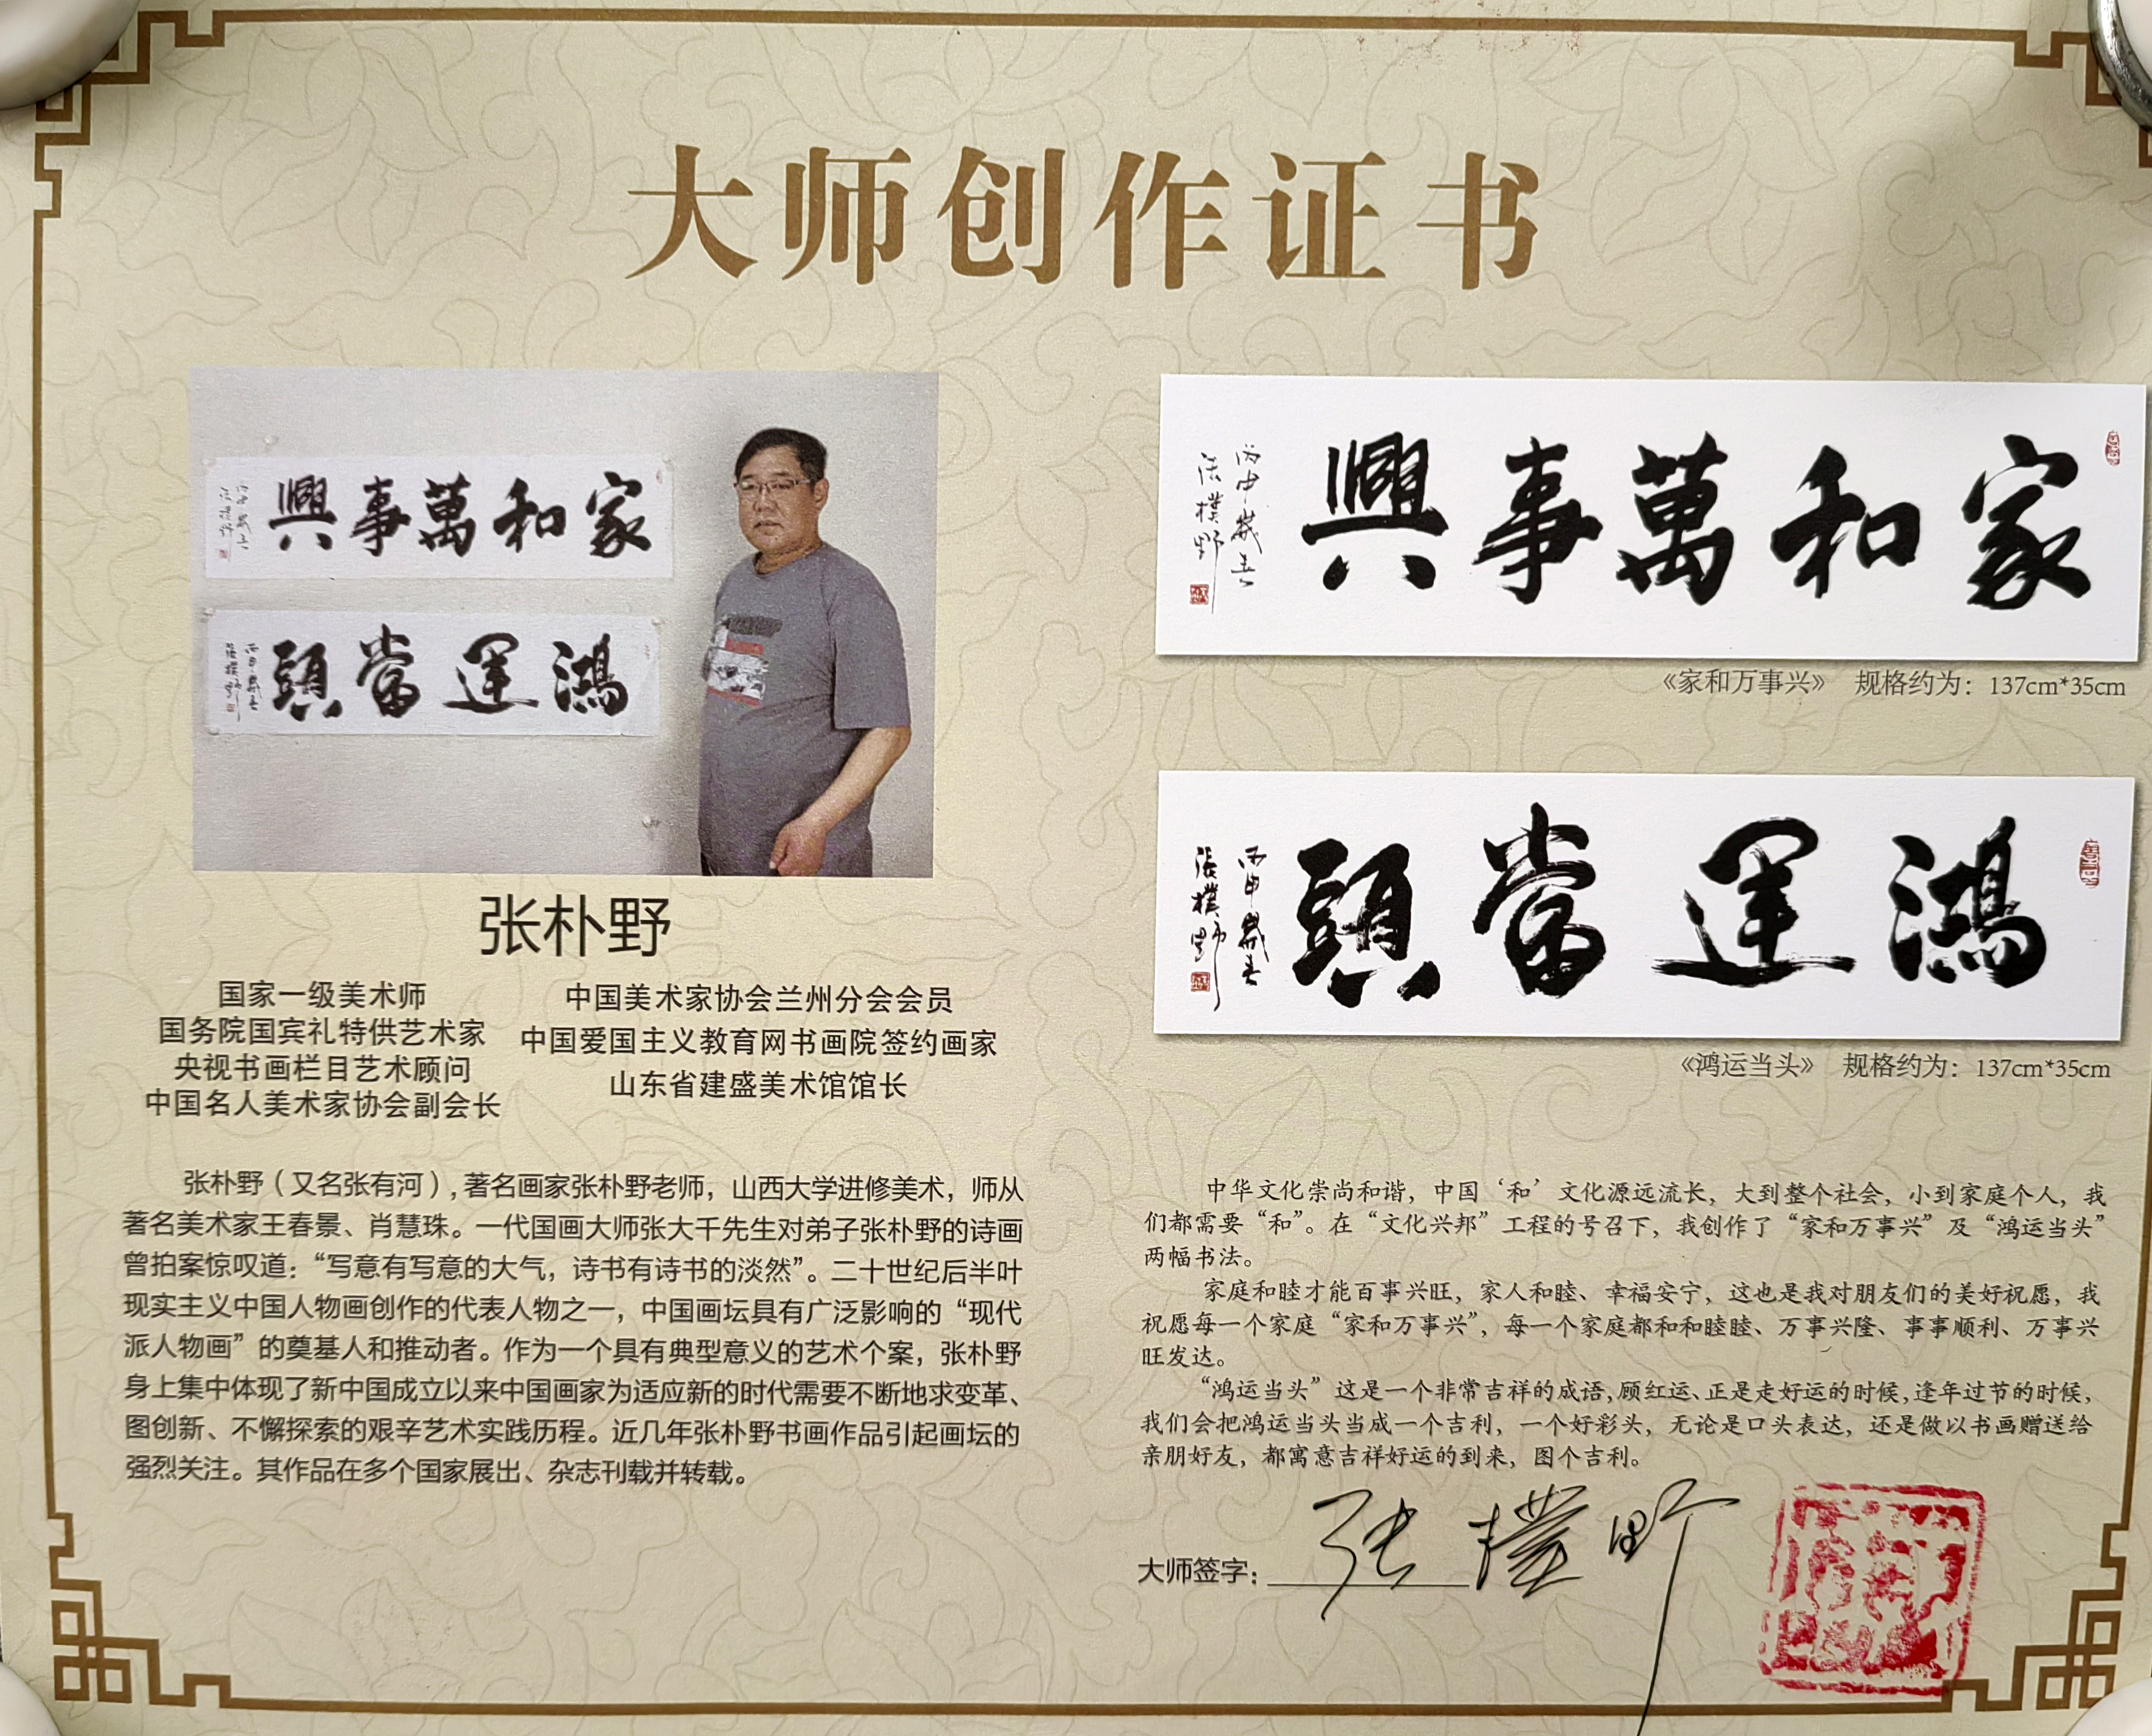 大师创作证书
興事萬和家
丙申歲春
張樸野
頭當運鴻
丙申歲春
張樸野
张朴野
国家一级美术师
国务院国宾礼特供艺术家
央视书画栏目艺术顾问
中国名人美术家协会副会长
中国美术家协会兰州分会会员
中国爱国主义教育网书画院签约画家
山东省建盛美术馆馆长
张朴野（又名张有河），著名画家张朴野老师，山西大学进修美术，师从
著名美术家王春景、肖慧珠。一代国画大师张大千先生对弟子张朴野的诗画
曾拍案惊叹道：“写意有写意的大气，诗书有诗书的淡然”。二十世纪后半叶
现实主义中国人物画创作的代表人物之一，中国画坛具有广泛影响的“现代
派人物画”的奠基人和推动者。作为一个具有典型意义的艺术个案，张朴野
身上集中体现了新中国成立以来中国画家为适应新的时代需要不断地求变革、
图创新、不懈探索的艰辛艺术实践历程。近几年张朴野书画作品引起画坛的
强烈关注。其作品在多个国家展出、杂志刊载并转载。
興事萬和家
丙申歲春
張樸野
《家和万事兴》 规格约为：137cm*35cm
頭當運鴻
丙申歲春
張樸野
《鸿运当头》 规格约为：137cm*35cm
中华文化崇尚和谐，中国‘和’文化源远流长，大到整个社会，小到家庭个人，我
们都需要“和”。在“文化兴邦”工程的号召下，我创作了“家和万事兴”及“鸿运当头”
两幅书法。
家庭和睦才能百事兴旺，家人和睦、幸福安宁，这也是我对朋友们的美好祝愿，我
祝愿每一个家庭“家和万事兴”，每一个家庭都和和睦睦、万事兴隆、事事顺利、万事兴
旺发达。
“鸿运当头”这是一个非常吉祥的成语，顾红运、正是走好运的时候，逢年过节的时候，
我们会把鸿运当头当成一个吉利，一个好彩头，无论是口头表达，还是做以书画赠送给
亲朋好友，都寓意吉祥好运的到来，图个吉利。
大师签字：张樸野